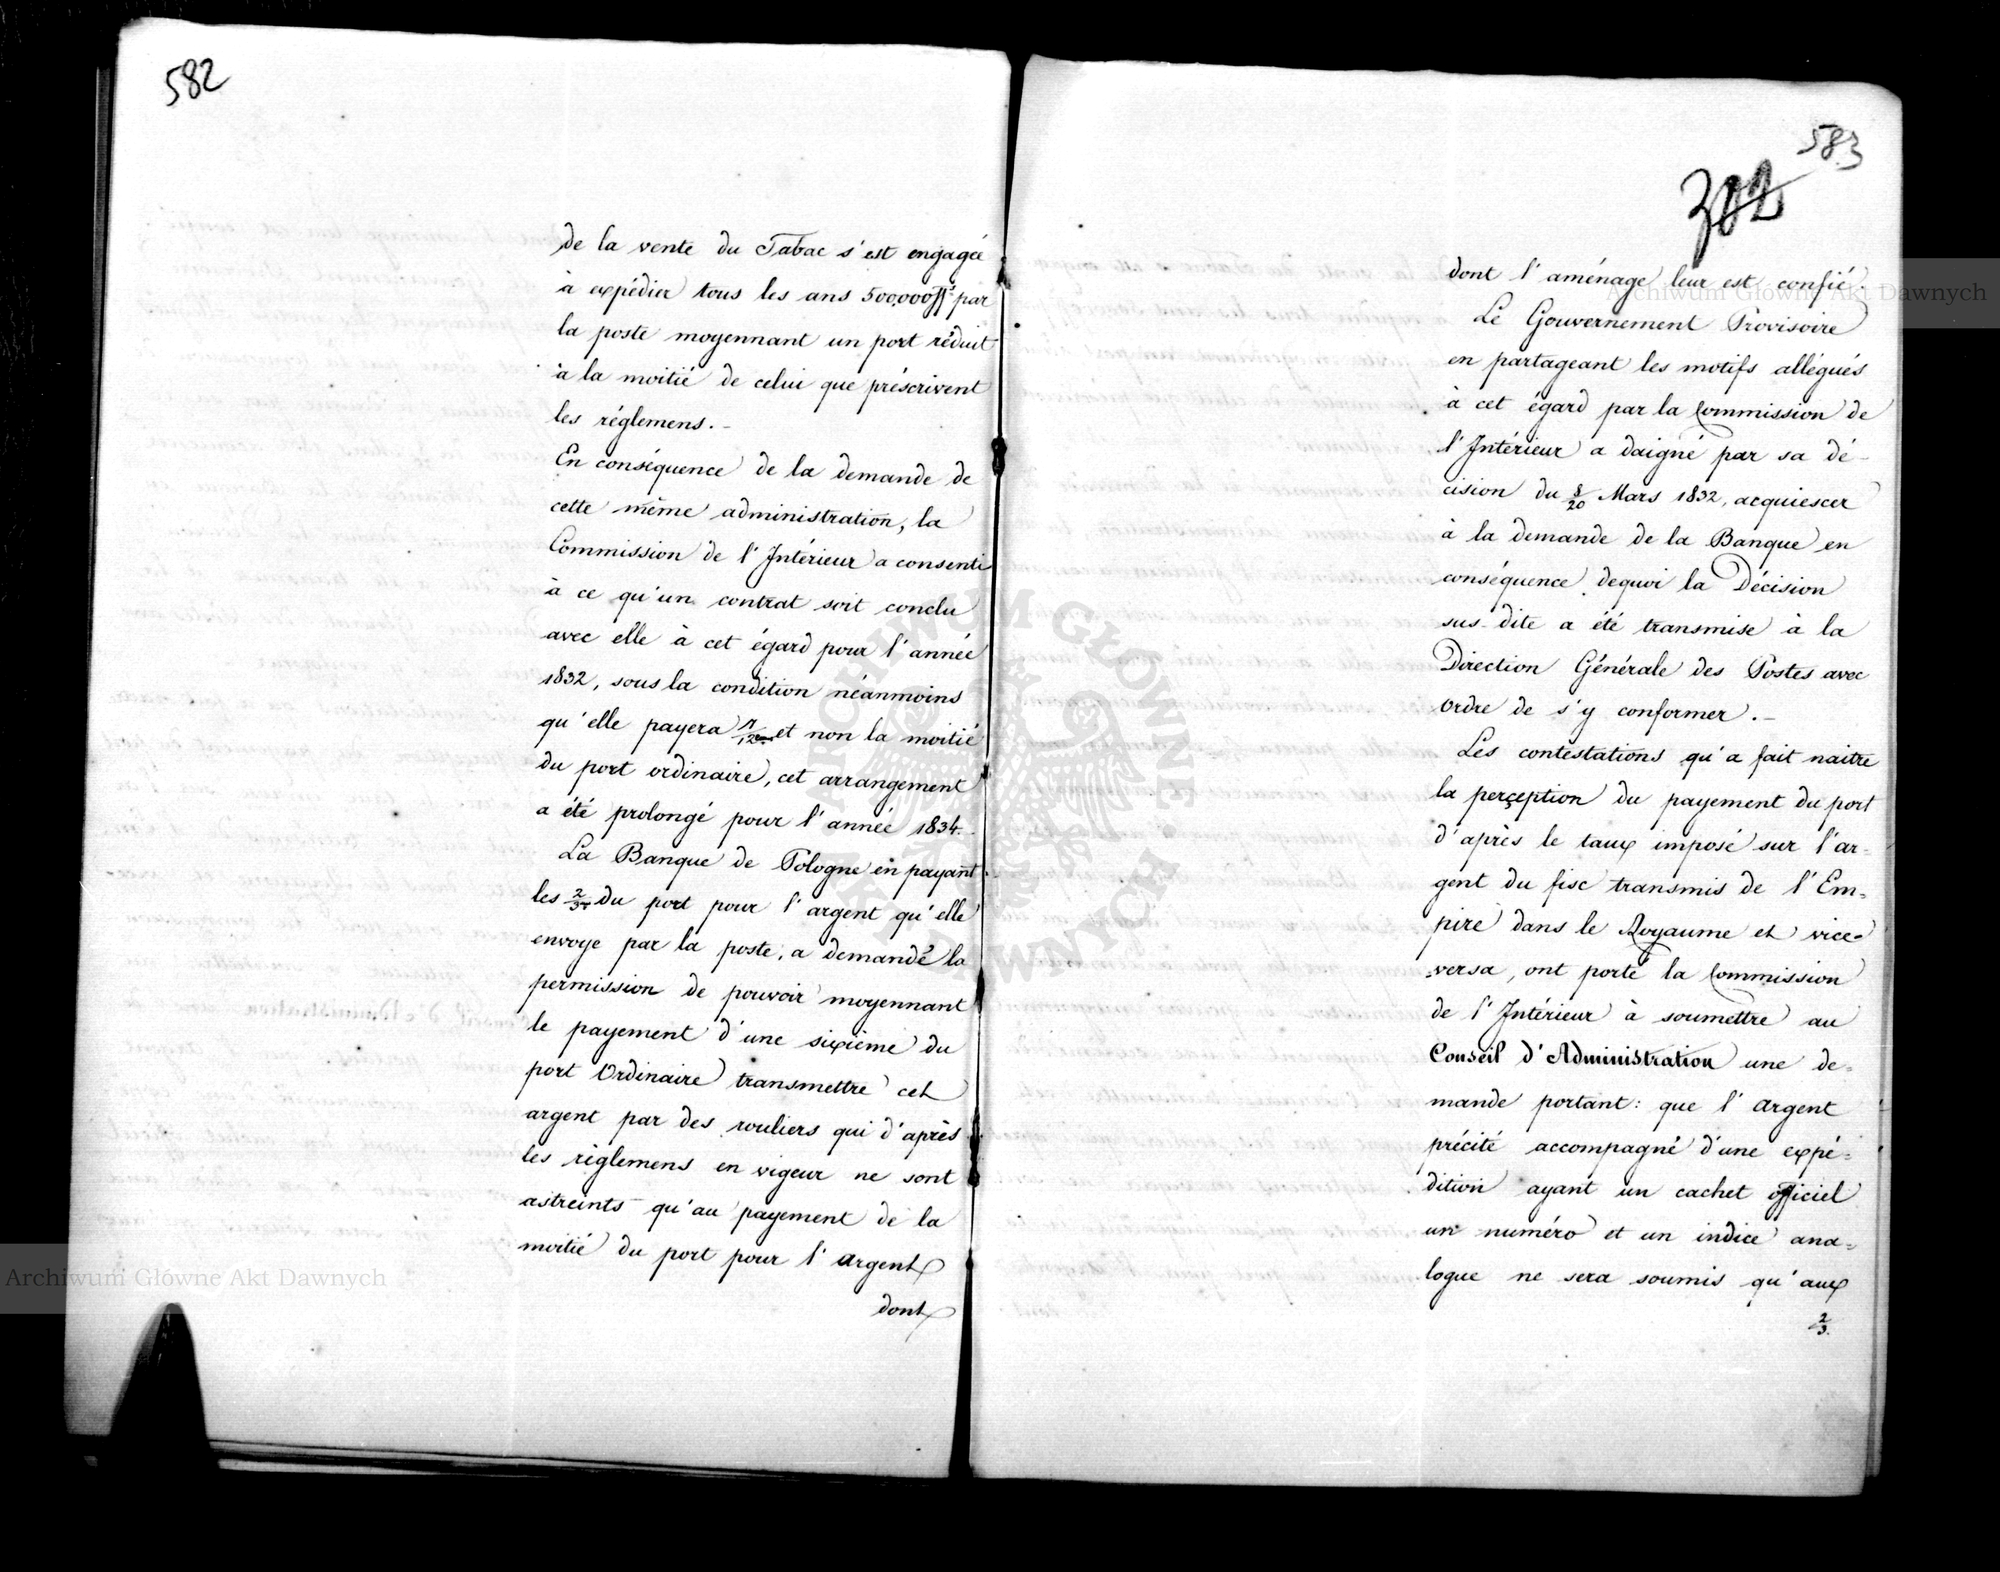 582
de la vente du Tabac s'est engagée
à expédier tous les ans 500,000 par
la poste moyennant un port réduit
à la moitié de celui que préscrivent
les réglemens. -
En conséquence de la demande de
cette même administration, la
Commission de l'Intérieur a consenti
à ce qu'un contrat soit conclu
avec elle à cet égard pour l'année
1832, sous la condition néanmoins
qu'elle payera et non la moitié
du port ordinaire, cet arrangement
a été prolongé pour l'année 1834.
La Banque de Pologne en payant
les 2/3 du port pour l'argent qu'elle
envoye par la poste, a demandé la
permission de pouvoir moyennant
le payement d'une sixième du
port Ordinaire transmettre cet
argent par des rouliers qui d'après
les règlemens en vigeur ne sont
astreints qu'au payement de la
moitié du port pour l'argent
dont
583
302
dont l'aménage leur est confié.
Le Gouvernement Provisoire
en partageant les motifs allégués
à cet égard par la Commission de
l'Intérieur a daigné par sa dé-
cision du 8/20 Mars 1832, acquiescer
à la demande de la Banque en
conséquence dequoi la Décision
sus-dite a été transmise à la
Direction Générale des Postes avec
ordre de s'y conformer. -
Les contestations qu'a fait naitre
la perçeption du payement du port
d'après le taux imposé sur l'ar=
gent du fisc transmis de l'Em=
pire dans le Royaume et vice=
=versa, ont porté la Commission
de l'Intérieur à soumettre au
Conseil d'Administration une de=
mande portant: que l'argent
précité accompagné d'une expé=
dition ayant un cachet officiel
un numéro et un indice ana=
logue ne sera soumis qu'aux
2/3.
Archiwum Główne Akt Dawnych
Archiwum Główne Akt Dawnych
ARCHIWUM GŁÓWNE AKT DAWNYCH